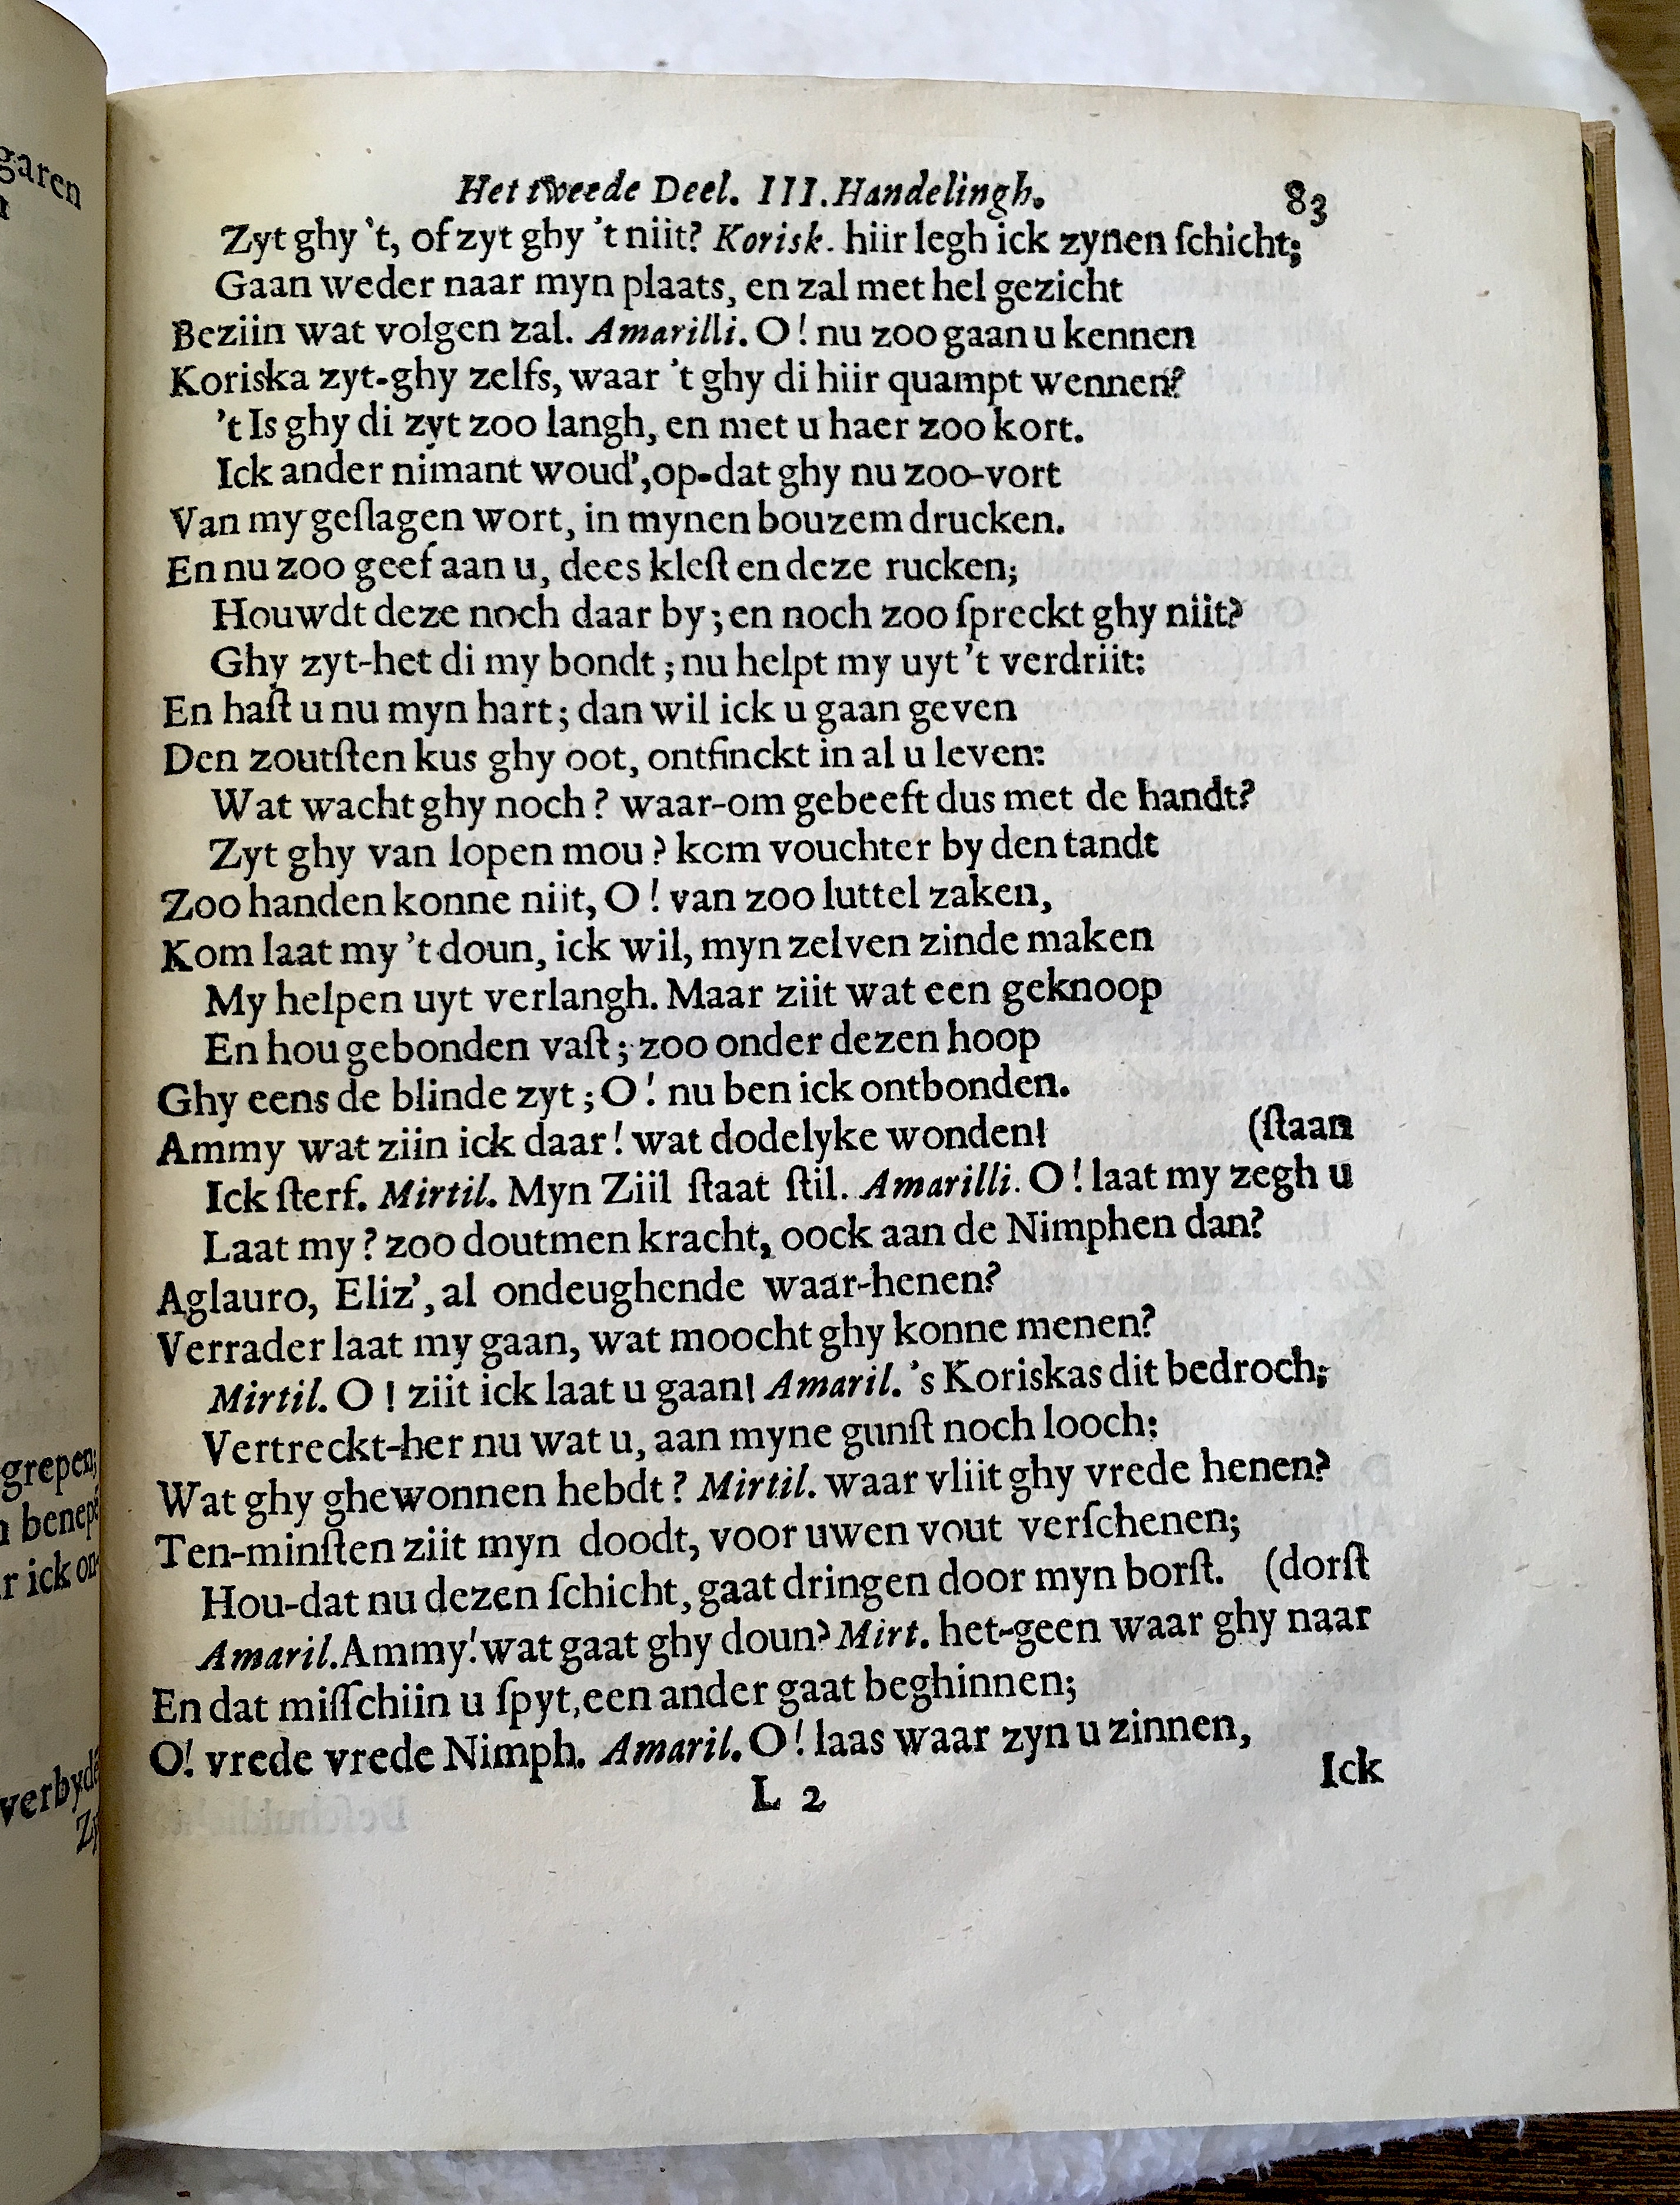 garen
Het tweede Deel. III. Handelingh. 83
Zyt ghy 't, of zyt ghy 't niit? Korisk. hiir legh ick zynen ſchicht;
Gaan weder naar myn plaats, en zal met hel gezicht
Beziin wat volgen zal. Amarilli. O! nu zoo gaan u kennen
Koriska zyt-ghy zelfs, waar 't ghy di hiir quampt wennen?
't Is ghy di zyt zoo langh, en met u haer zoo kort.
Ick ander nimant woud', op-dat ghy nu zoo-vort
Van my geſlagen wort, in mynen bouzem drucken.
En nu zoo geef aan u, dees kleſt en deze rucken;
Houwdt deze noch daar by; en noch zoo ſpreckt ghy niit?
Ghy zyt-het di my bondt; nu helpt my uyt 't verdriit:
En haſt u nu myn hart; dan wil ick u gaan geven
Den zoutſten kus ghy oot, ontfinckt in al u leven:
Wat wacht ghy noch? waar-om gebeeft dus met de handt?
Zyt ghy van lopen mou? kom vouchter by den tandt
Zoo handen konne niit, O! van zoo luttel zaken,
Kom laat my 't doun, ick wil, myn zelven zinde maken
My helpen uyt verlangh. Maar ziit wat een geknoop
En hou gebonden vaſt; zoo onder dezen hoop
Ghy eens de blinde zyt; O! nu ben ick ontbonden.
Ammy wat ziin ick daar! wat dodelyke wonden! (ſtaan
Ick ſterf. Mirtil. Myn Ziil ſtaat ſtil. Amarilli. O! laat my zegh u
Laat my? zoo doutmen kracht, oock aan de Nimphen dan?
Aglauro, Eliz', al ondeughende waar-henen?
Verrader laat my gaan, wat moocht ghy konne menen?
Mirtil. O! ziit ick laat u gaan! Amaril. 's Koriskas dit bedroch;
Vertreckt-her nu wat u, aan myne gunſt noch looch:
Wat ghy ghewonnen hebdt? Mirtil. waar vliit ghy vrede henen?
Ten-minſten ziit myn doodt, voor uwen vout verſchenen;
Hou-dat nu dezen ſchicht, gaat dringen door myn borſt. (dorſt
Amaril. Ammy! wat gaat ghy doun? Mirt. het-geen waar ghy naar
En dat miſſchiin u ſpyt, een ander gaat beghinnen;
O! vrede vrede Nimph. Amaril. O! laas waar zyn u zinnen,
L 2 Ick
grepen;
benepē
r ick on-